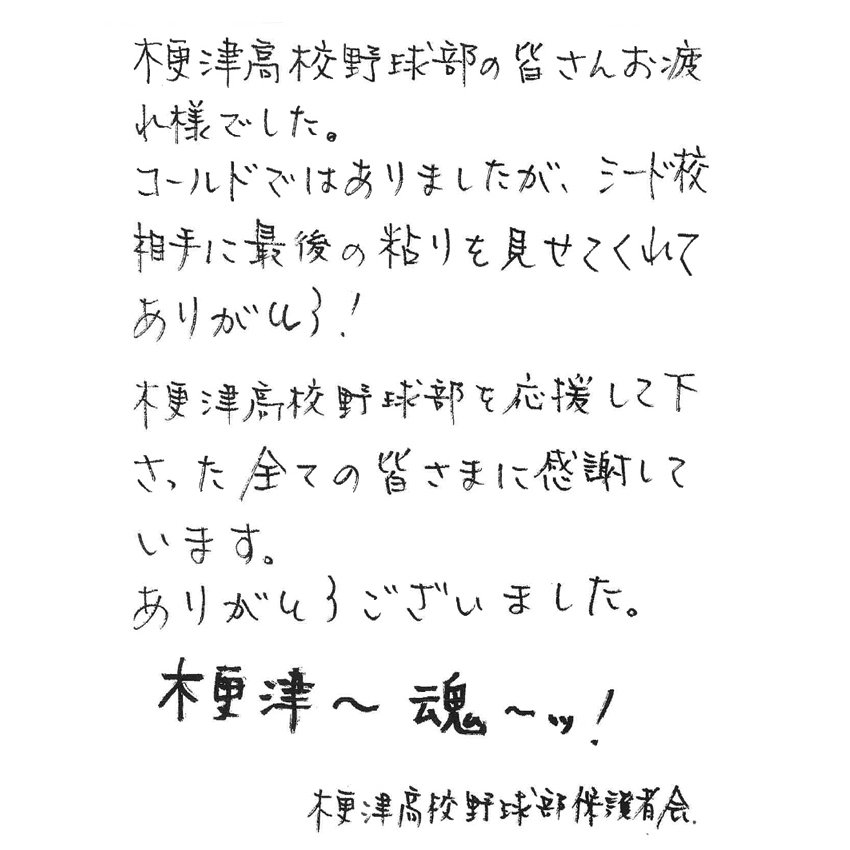 木更津高校野球部の皆さんお疲
れ様でした。
コールドではありましたが、シード校
相手に最後の粘りを見せてくれて
ありがとう!
木更津高校野球部を応援して下
さった全ての皆さまに感謝して
います。
ありがとうございました。
木更津～魂～ッ!
木更津高校野球部保護者会.